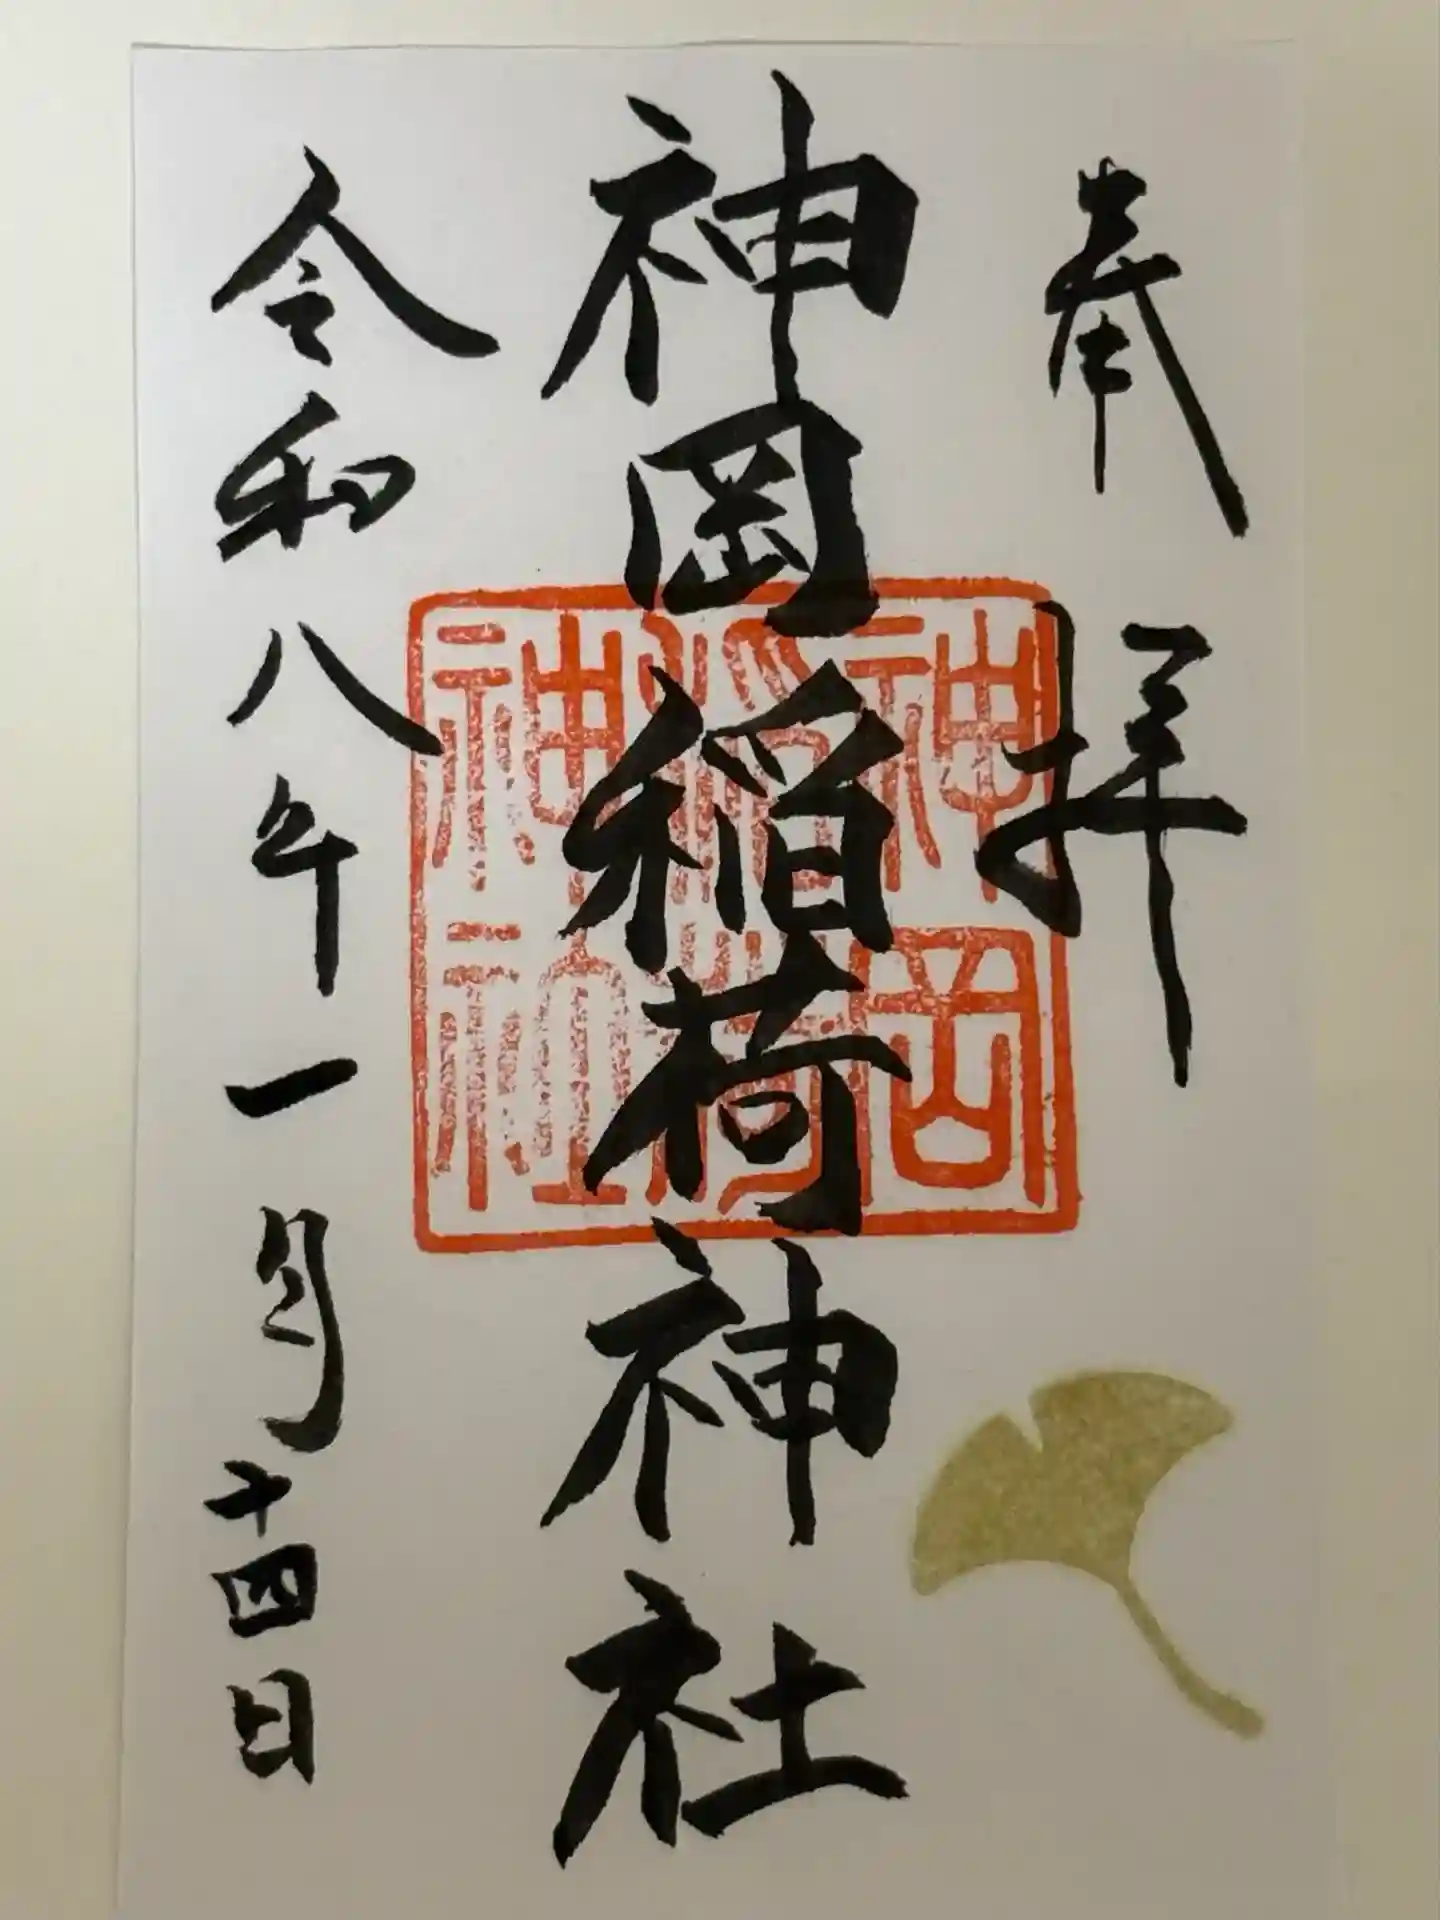 奉拝
神岡稲荷神社
神岡
稲荷
神社
令和八年一月十四日